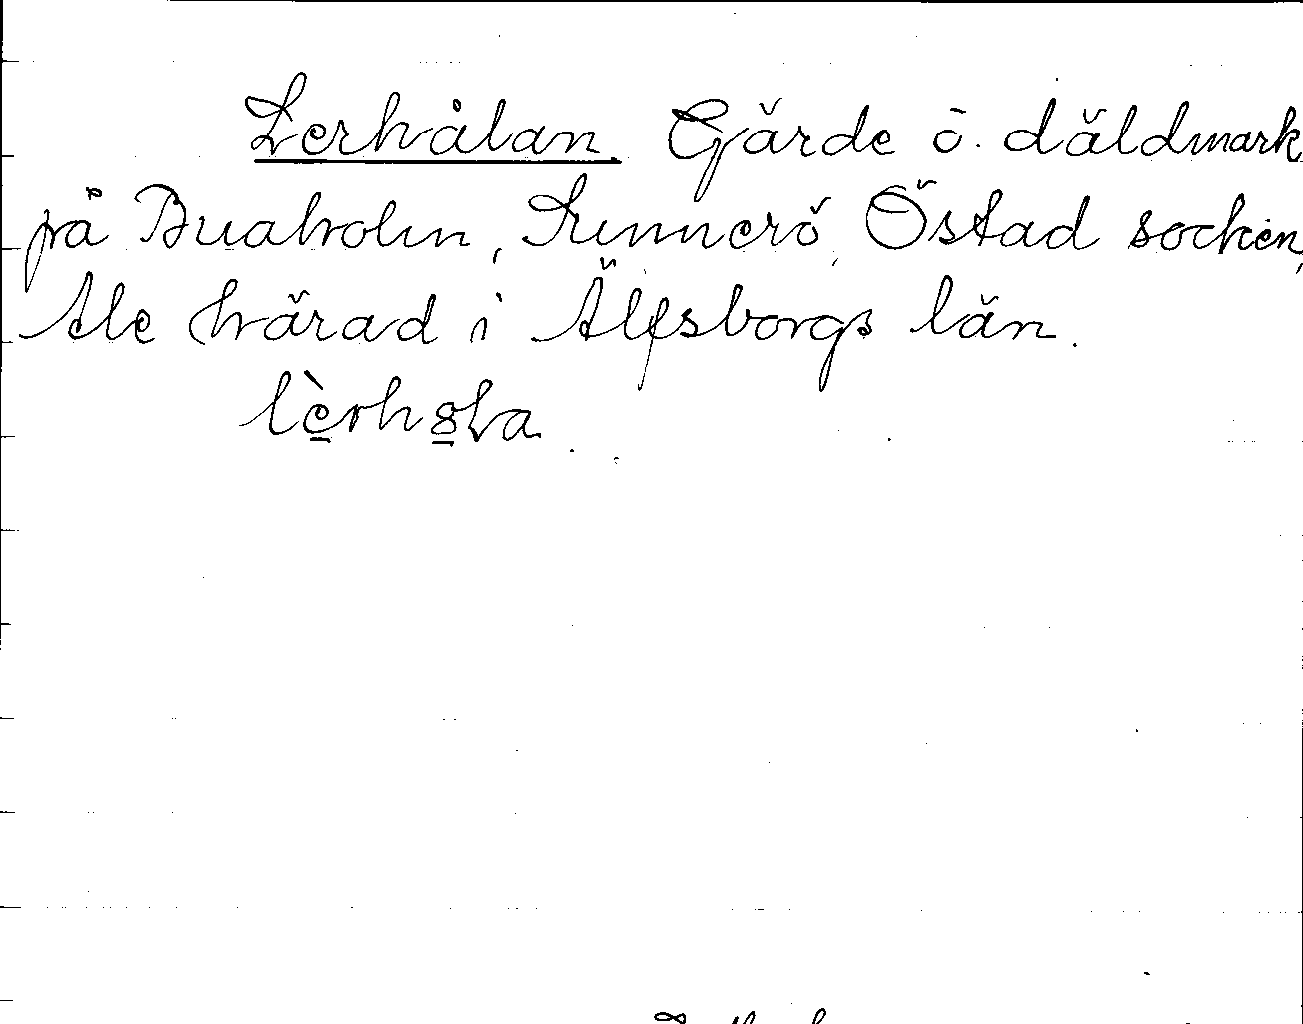 Lerhålan. Gärde ö. däldmark
på Buaholm, Sunnerö, Östad socken,
Ale härad i Älfsborgs län.
lèrhola